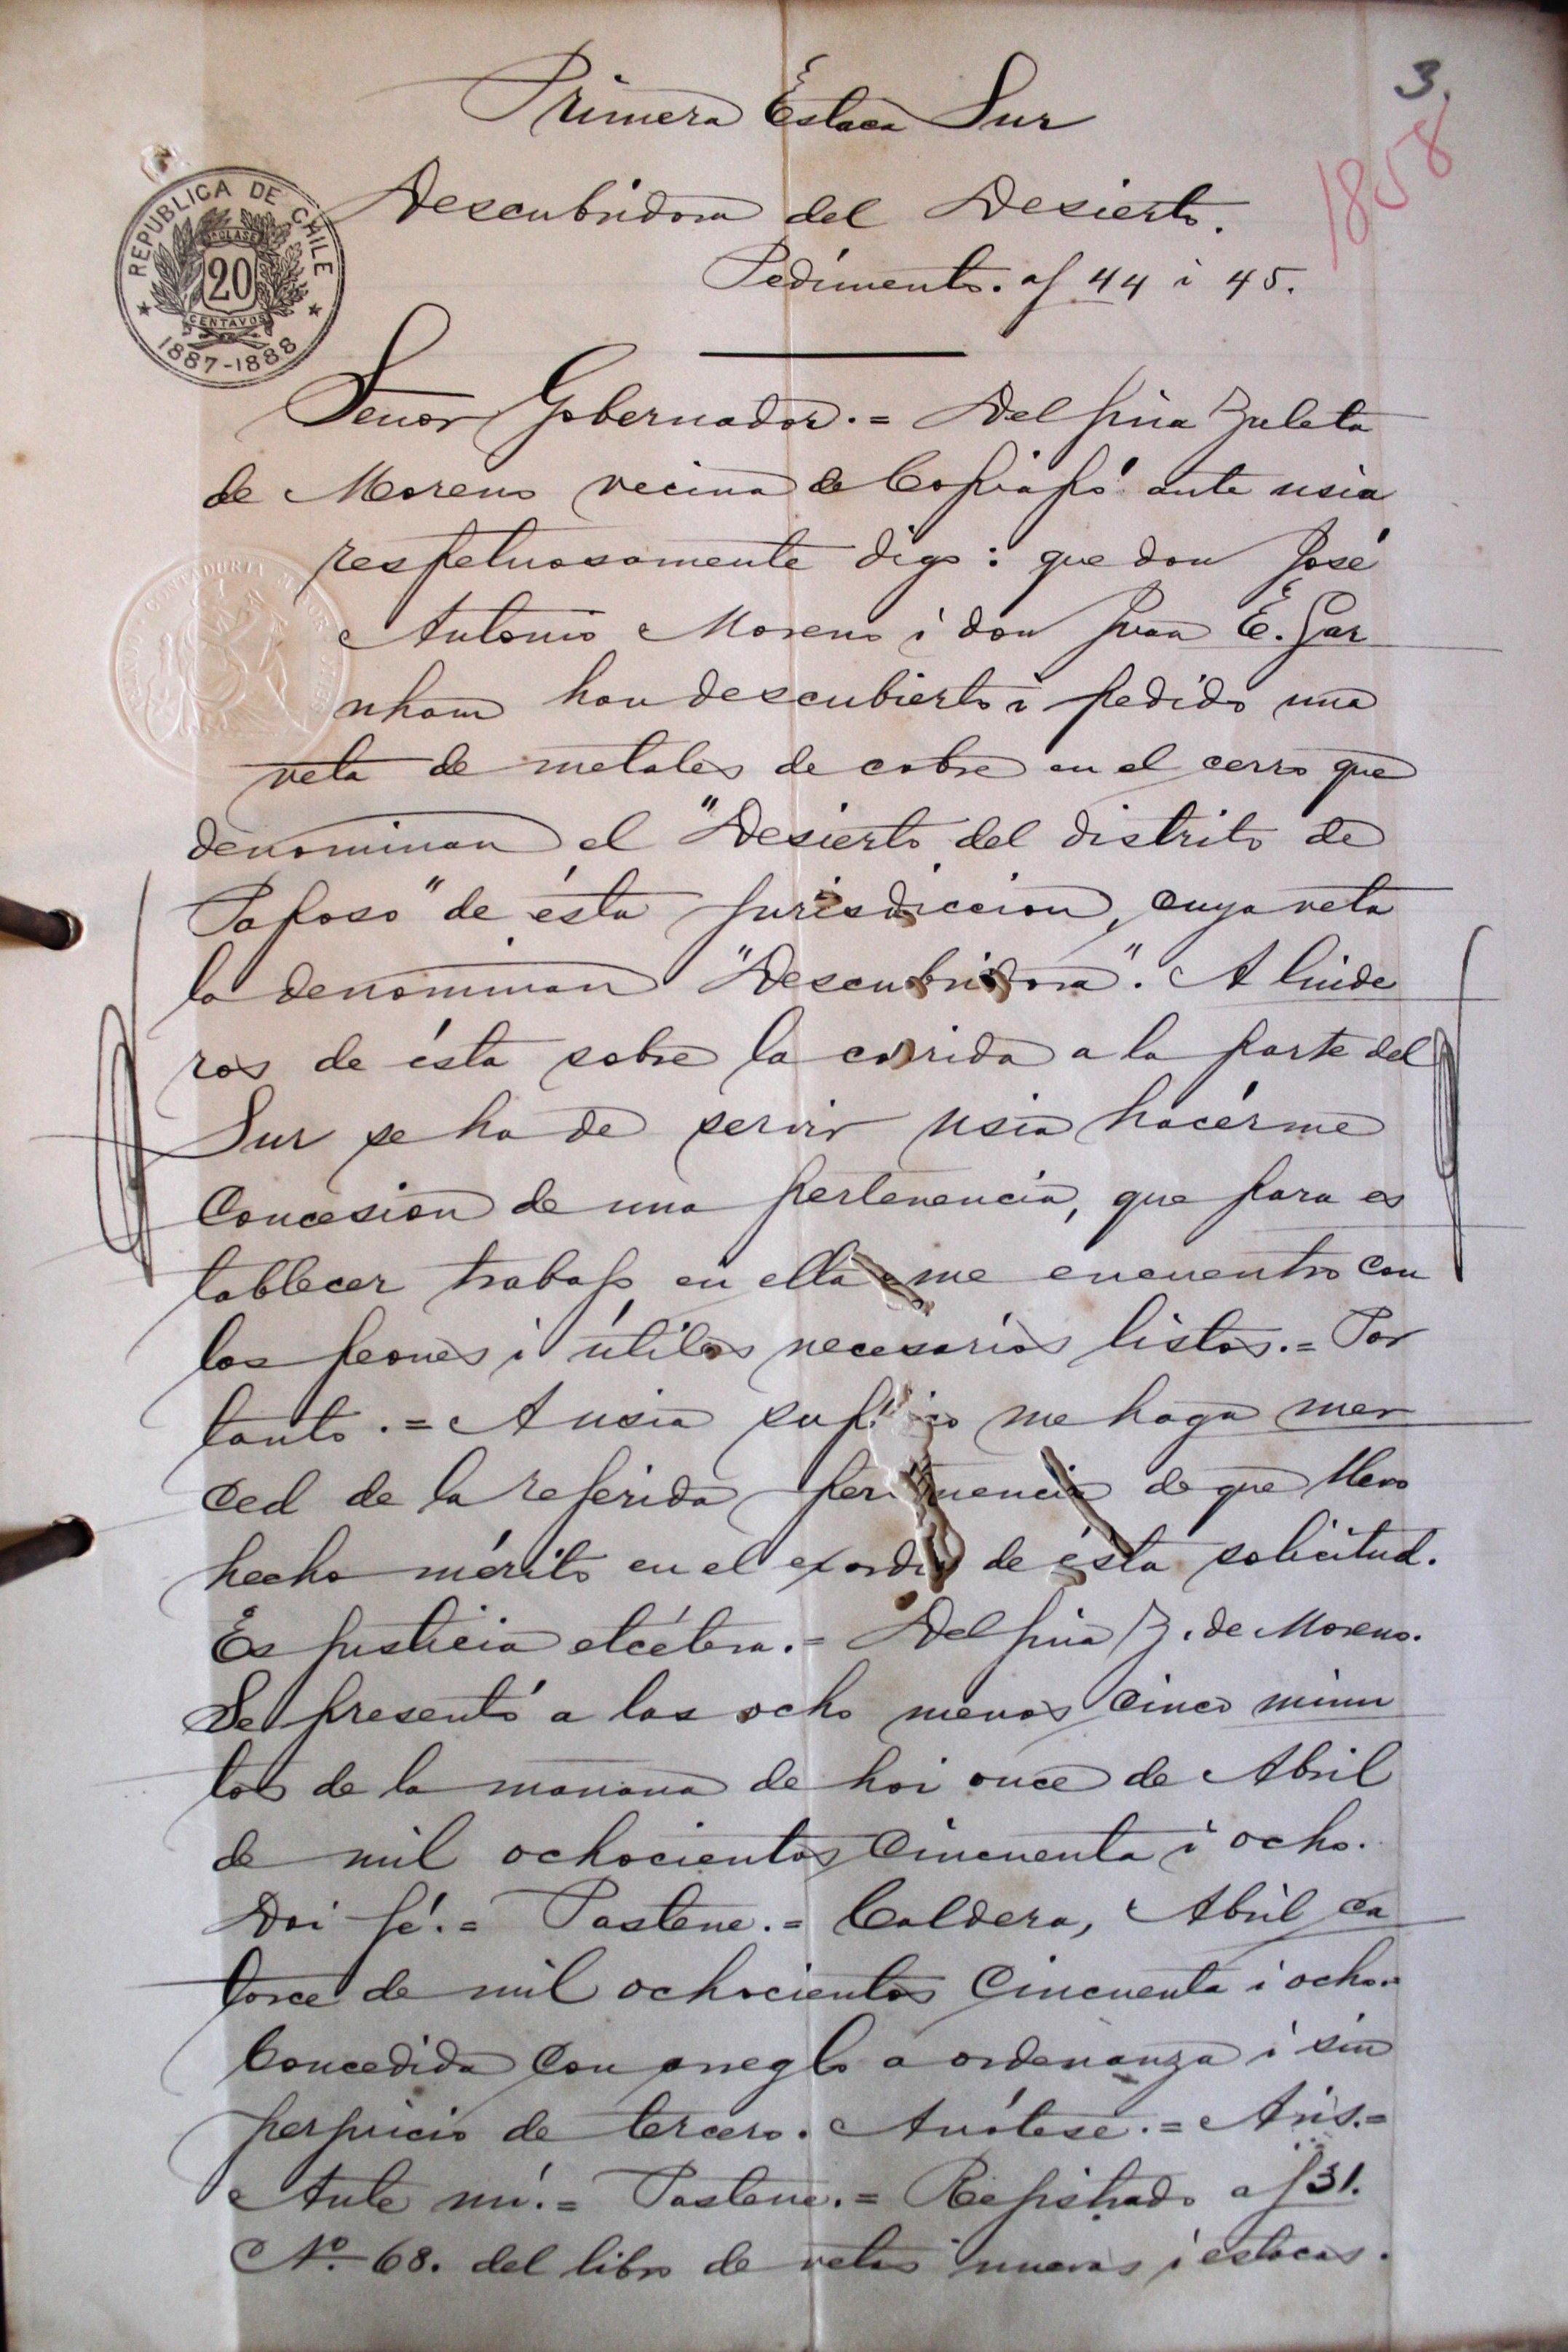 3.
1858
Primera Estaca Sur
Descubridora del Desierto.
Pedimento. af 44 i 45.
REPUBLICA DE CHILE
20
CENTAVOS
1887-1888
Señor Gobernador.= Delfina Zuleta
de Moreno vecina de Copiapó ante usia
respetuosamente digo: que don José
Antonio Moreno i don Juan E. Gar
nham han descubierto i pedido una
veta de metales de cobre en el cerro que
denominan el "Desierto del distrito de
Paposo" de ésta jurisdiccion, cuya veta
la denominan "Descubridora". A linde
ros de ésta sobre la corrida a la parte del
Sur se ha de servir usia hacérme
Concesion de una pertenencia, que para es
tablecer trabajo en ella me encuentro con
los peones i útiles necesarios listos.= Por
tanto.= A usia suplico me haga mer
ced de la referida pertenencia de que llevo
hecho mérito en el exordio de ésta solicitud.
Es justicia etcétera.= Delfina Z. de Moreno.
Se presentó a las ocho menos cinco minu
tos de la manana de hoi once de Abril
de mil ochocientos cincuenta i ocho.
Doi fé.= Pastene.= Caldera, Abril ca
torce de mil ochocientos cincuenta i ocho.=
Concedida con arreglo a ordenanza i sin
perjuicio de tercero. Anótese.= Aris.=
Ante mí.= Pastene.= Rejistrado af 31.
Nº 68. del libro de vetas nuevas i estacas.